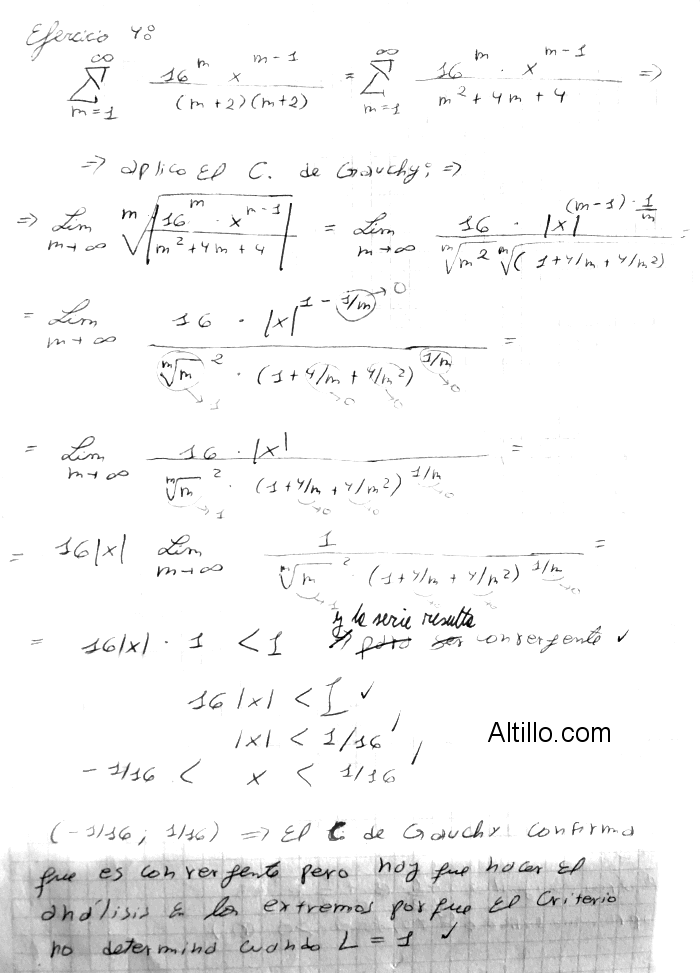 Ejercicio 4°
∞ ∑ m=1 16^m x^(m-1) / (m+2)(m+2) = ∞ ∑ m=1 16^m · x^(m-1) / m² + 4m + 4 =>
=> aplico El C. de Cauchy: =>
=> Lim m→∞ m√|16^m · x^(m-1) / m² + 4m + 4| = Lim m→∞ 16 · |x|^((m-1)·1/m) / m√m² m√(1 + 4/m + 4/m²) =
= Lim m→∞ 16 · |x|^(1 - 1/m →0) / m√m² →1 · (1 + 4/m →0 + 4/m² →0)^(1/m →0) =
= Lim m→∞ 16 · |x| / m√m² →1 · (1 + 4/m →0 + 4/m² →0)^(1/m →0) =
= 16|x| Lim m→∞ 1 / m√m² →1 · (1 + 4/m →0 + 4/m² →0)^(1/m →0) =
y la serie resulta
= 16|x| · 1 < 1 para ser convergente ✓
16 |x| < 1 ✓
|x| < 1/16
-1/16 < x < 1/16
Altillo.com
(-1/16; 1/16) => El C. de Cauchy confirma
que es convergente pero hay que hacer el
análisis en los extremos porque El Criterio
no determina cuando L = 1 ✓